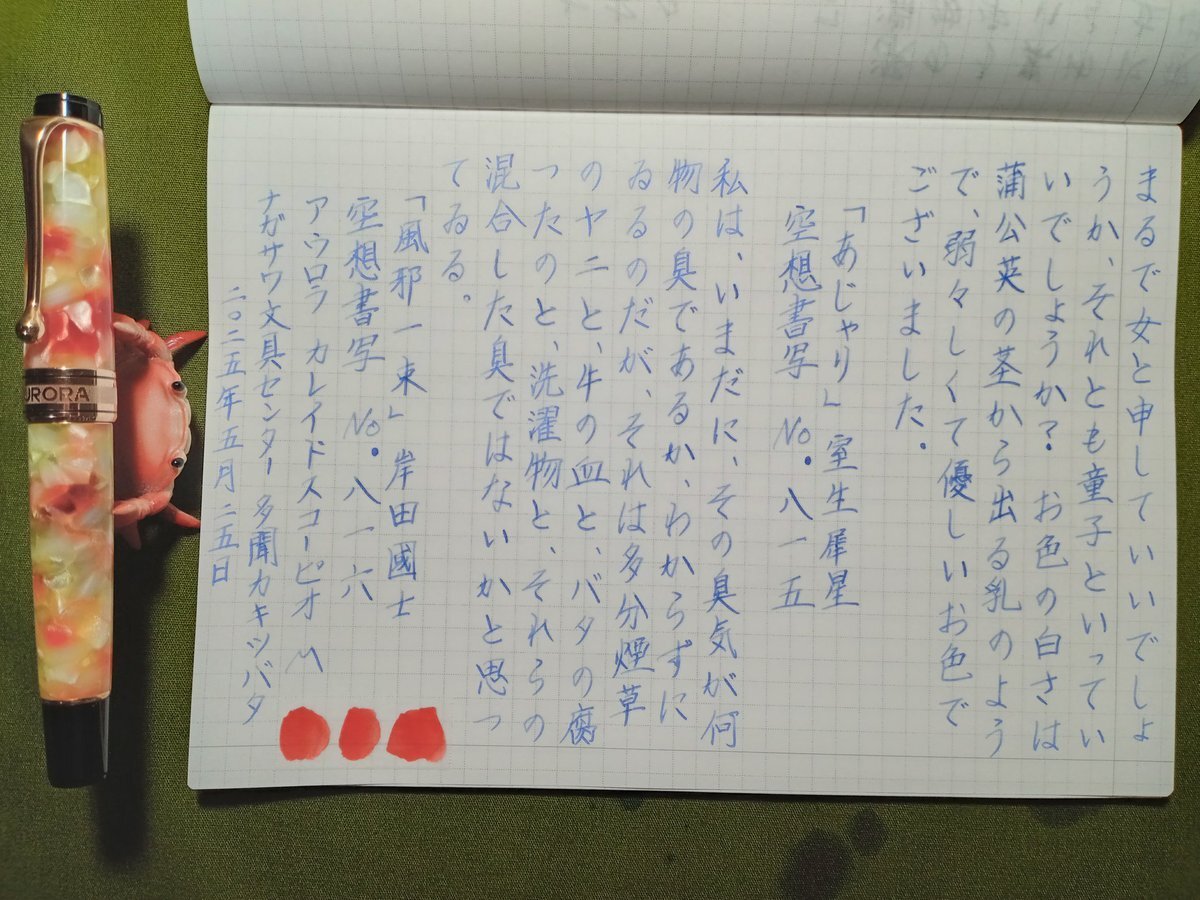 まるで女と申していいでしょ
うか、それとも童子といってい
いでしようか？お色の白さは
蒲公英の茎から出る乳のよう
で、弱々しくて優しいお色で
ございました。
「あじゃり」室生犀星
空想書写 No.八一五
私は、いまだに、その臭気が何
物の臭であるか、わからずに
ゐるのだが、それは多分煙草
のヤニと、牛の血と、バタの腐
つたのと、洗濯物と、それらの
混合した臭ではないかと思つ
てゐる。
「風邪一束」岸田國士
空想書写 No.八一六
アウロラ カレイドスコーピオ M
ナガサワ文具センター 多聞カキツバタ
二〇二五年五月二五日
URORA